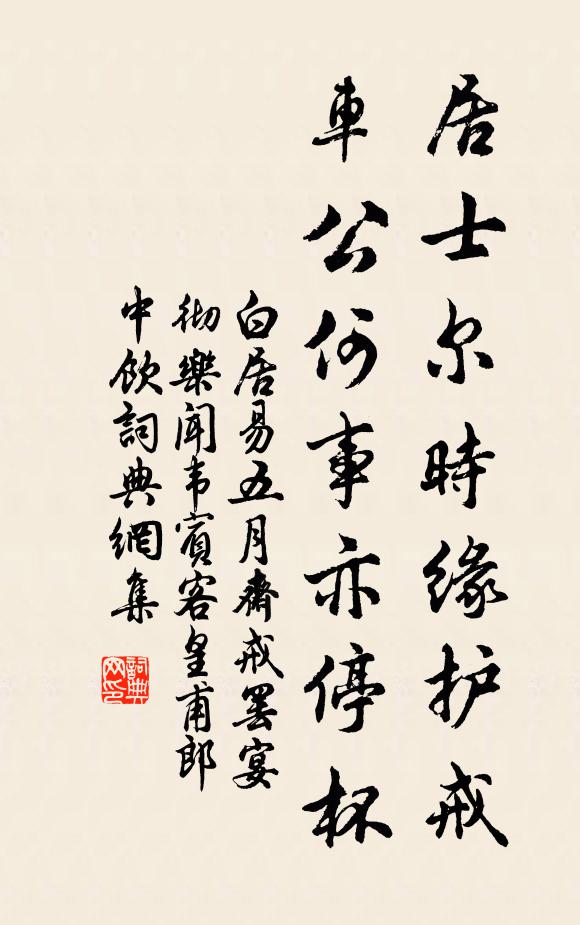 居士尔時缘护戒
車公何事亦停杯
白居易五月齋戒罢宴
彻樂闻韦賓客皇甫郎
中飲詞典網集
詞典
网印